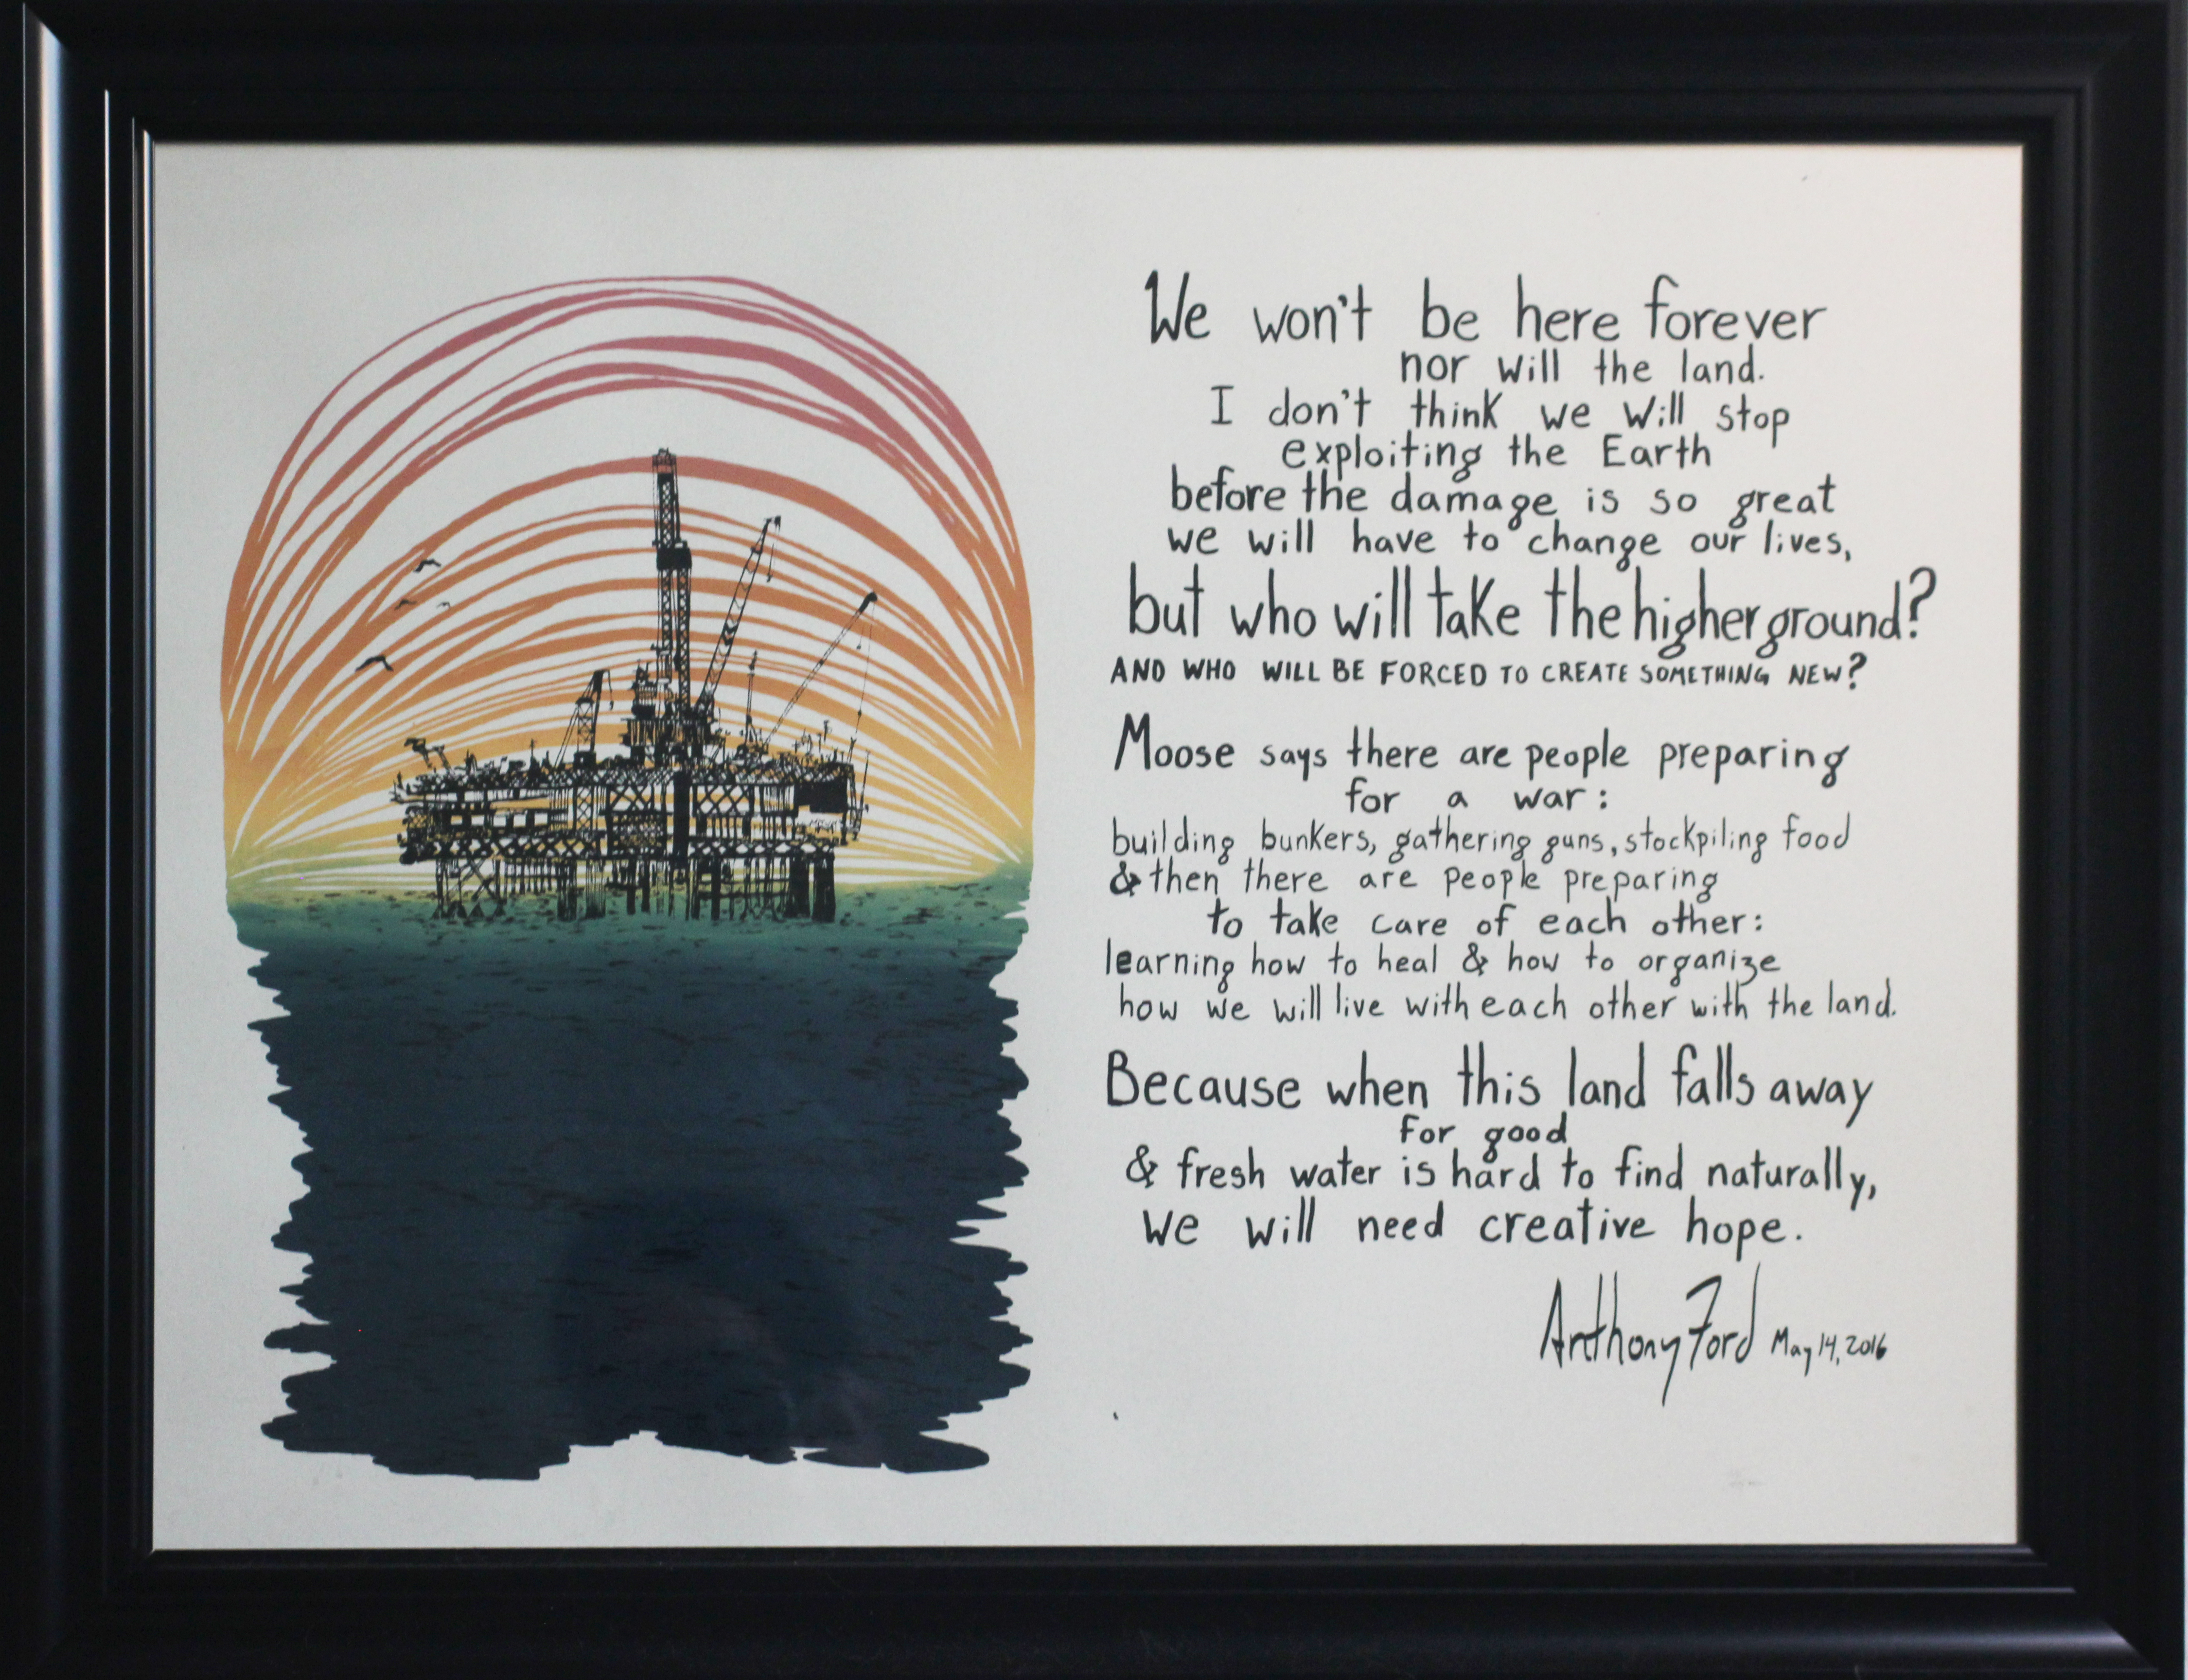 We won't be here forever
nor will the land.
I don't think we will stop
exploiting the Earth
before the damage is so great
we will have to change our lives,
but who will take the higher ground?
AND WHO WILL BE FORCED TO CREATE SOMETHING NEW?
Moose says there are people preparing
for a war:
building bunkers, gathering guns, stockpiling food
& then there are people preparing
to take care of each other:
learning how to heal & how to organize
how we will live with each other with the land.
Because when this land falls away
for good
& fresh water is hard to find naturally,
we will need creative hope.
Anthony Ford May 14, 2016